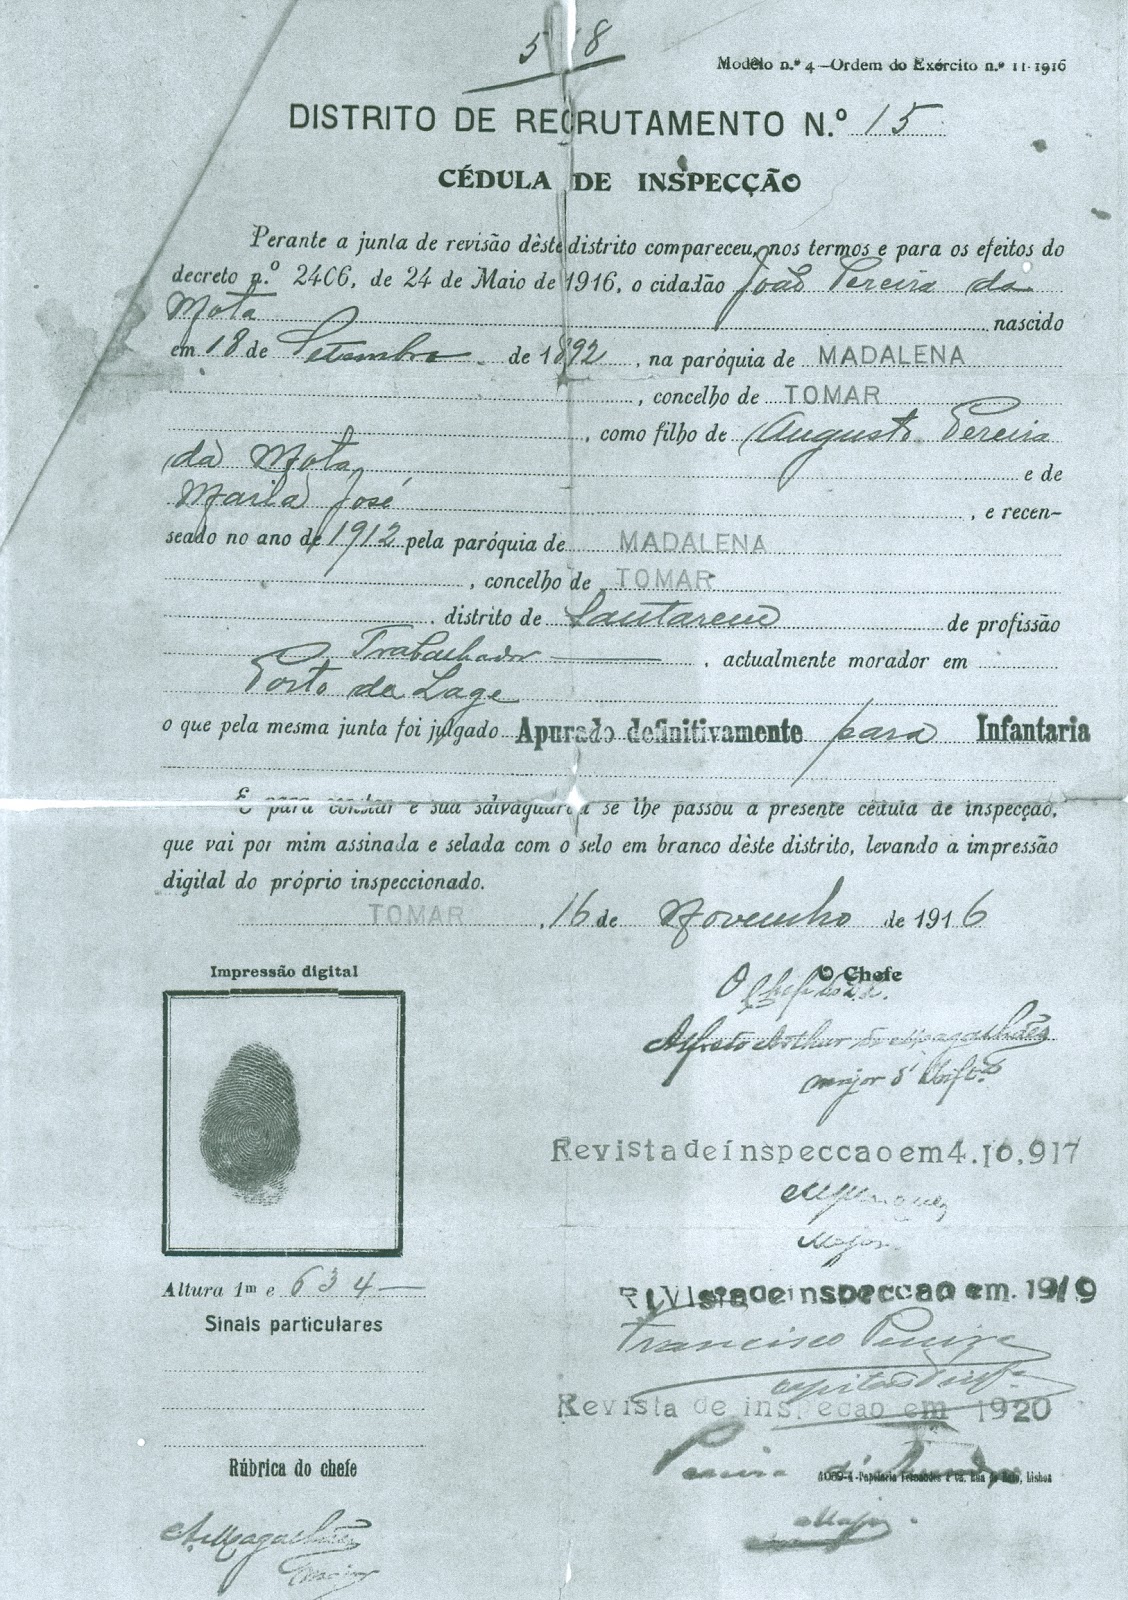 5 8
Modêlo n.º 4—Ordem do Exército n.º 11-1916
DISTRITO DE RECRUTAMENTO N.º 15
CÉDULA DE INSPECÇÃO
Perante a junta de revisão dêste distrito compareceu, nos termos e para os efeitos do
decreto n.º 2406, de 24 de Maio de 1916, o cidadão João Pereira da
Mota nascido
em 18 de Setembro de 1892, na paróquia de MADALENA
, concelho de TOMAR
, como filho de Augusto Pereira
da Mota, e de
Maria José , e recen-
seado no ano de 1912 pela paróquia de MADALENA
, concelho de TOMAR
. distrito de Santarem de profissão
Trabalhador — , actualmente morador em
Porto da Lage
o que pela mesma junta foi julgado Apurado definitivamente para Infantaria
E para constar e sua salvaguarda se lhe passou a presente cédula de inspecção,
que vai por mim assinada e selada com o selo em branco dêste distrito, levando a impressão
digital do próprio inspeccionado.
TOMAR , 16 de Novembro de 1916
Impressão digital
O Chefe
O Chefe
Alfredo Arthur de Magalhães
major
Revista de inspeccao em 4.10.917
Major
Altura 1m e 634 —
Revista de inspeccao em. 1919
Sinais particulares
Francisco Pereira
Revista de inspecao em 1920
Rúbrica do chefe
Pereira
4069-4-Papelaria Fernandes & Ca. Rua do Rato, Lisboa
Major
A. Magalhães
major